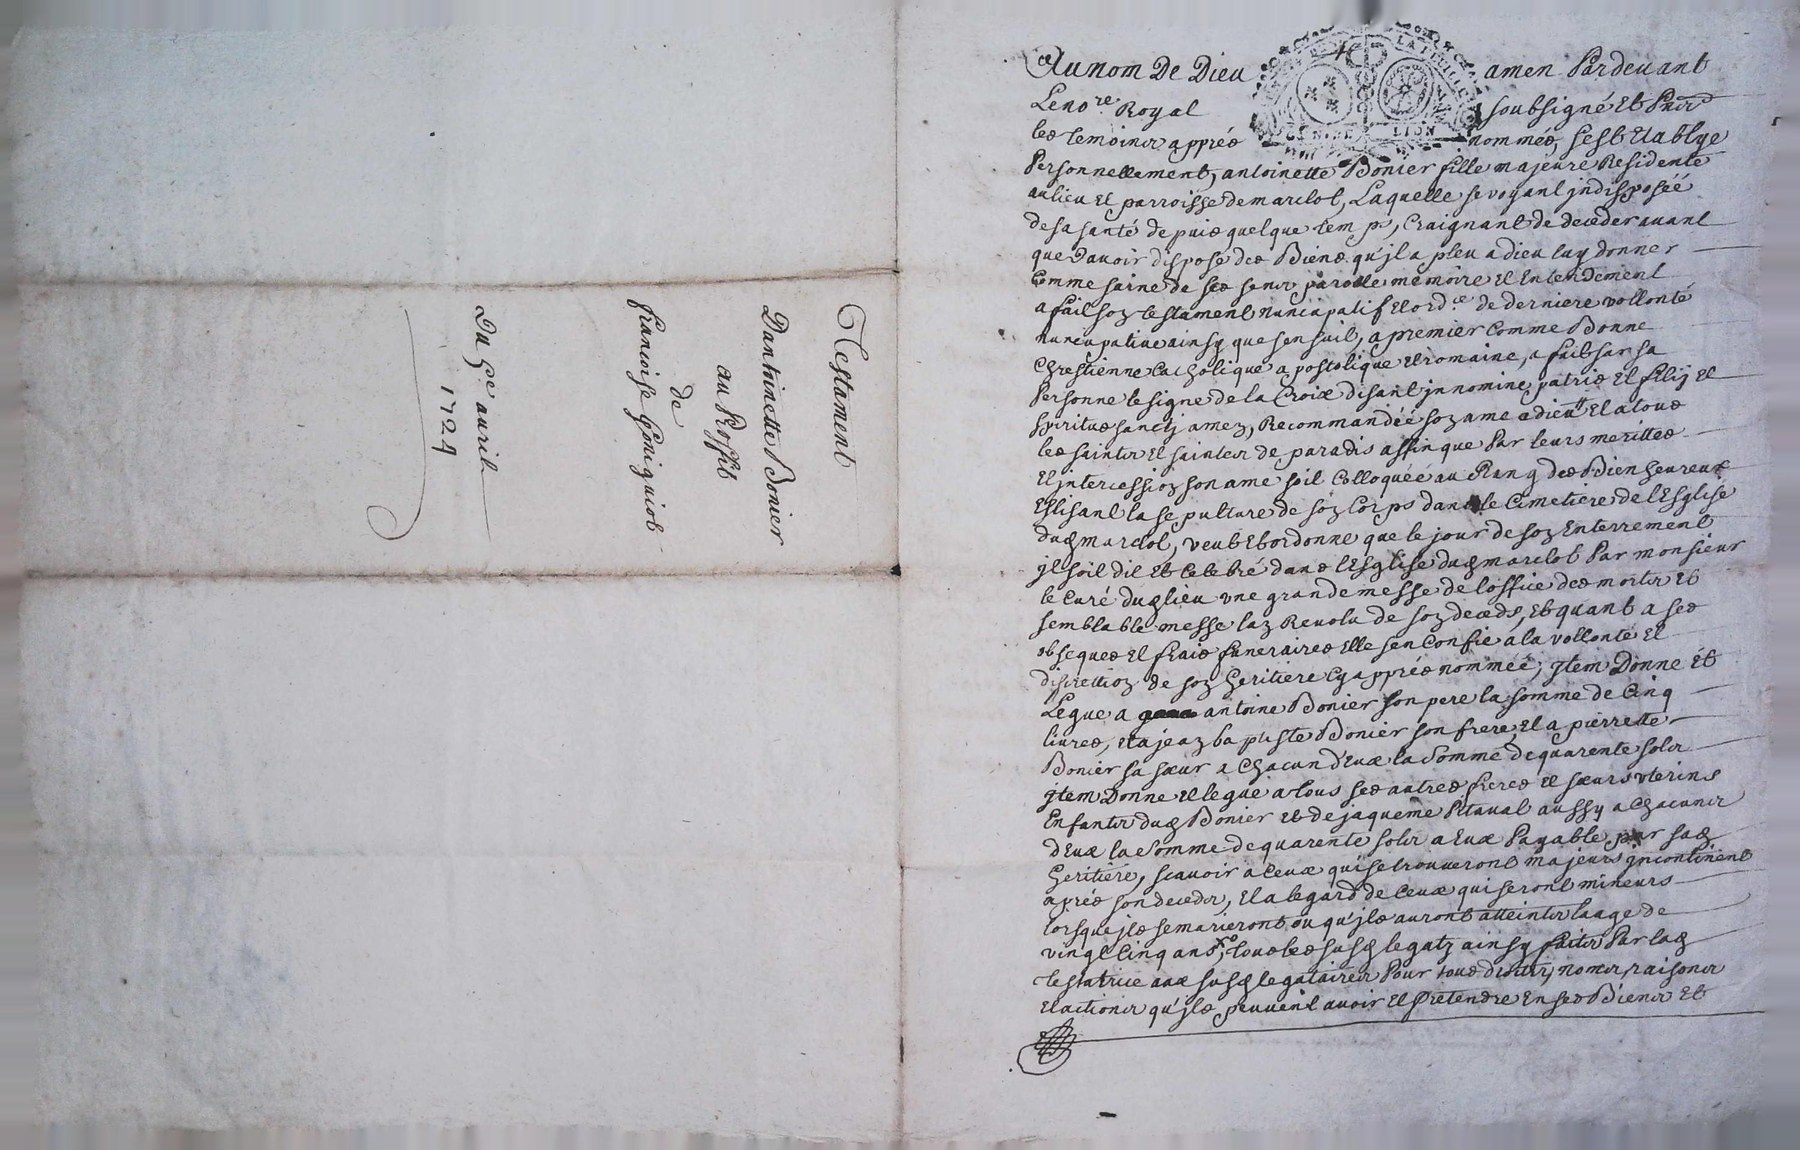 Testament
Dantoinette Bonier
au Proffit
de
francoise Goniguiob
Du 9e auril
1724
Au nom De Dieu amen Pardeuant
Le no.re Royal soubsigné Et Pnts
les temoins apprés nommés, sest Etablye
Personnellement, antoinette Bonier fille majeure Residente
au lieu et parroisse de marclot, Laquelle se voyant jndisposéé
de sa santé depuis quelque temps, Craignant de deceder auant
que dauoir dispose des Biens qu'jl a pleu a dieu luy donner
Comme saine de ses sens parolle memoire et Entendement
a fait son testament nuncupatif et ord.ce de derniere vollonté
nuncupatiue ainsy que sensuit, a premier Comme Bonne
Chrestienne Catholique apostolique et romaine, a fait sur sa
Personne le signe de la Croix disant jn nomine patris et filij et
spiritus sanctj amen, Recommandéé son ame a dieu et a tous
les saints et saintes de paradis affin que Par leurs merittes
et jntercession son ame soit Colloquéé au Rang des Bien heureux
Eslisant la sepulture de son Corps dans le Cimetiere de lEsglise
dud marclot, veut Et ordonne que le jour de son Enterrement
jl soit dit Et Celebré dans lEsglise dud marclot Par monsieur
le Curé dud lieu vne grande messe de loffice des morts Et
semblable messe lan Reuolu de son deceds, Et quant a ses
obseques et frais funeraires Elle sen Confie a la vollonté et
discrettion de son heritiere Cy apprés nomméé, jtem Donne Et
Legue a antoine Bonier son pere la somme de Cinq
liures, et a jean baptiste Bonier son frere, et a pierrette
Bonier sa sœur a Chacun d'Eux la somme de quarente sols
jtem Donne et legue a tous ses autres freres et sœurs vterins
Enfants dud Bonier et de jaqueme Pitaual aussy a Chacuns
d'Eux la somme de quarente sols a Eux Payable par sad
heritiere, scauoir a Ceux qui se trouueront majeurs jncontinent
aprés son decedz, et a legard de Ceux qui seront mineurs
lorsque jls se marieront ou qu'jls auront atteints laage de
vingt Cinq ans, tous les susd legatz ainsy faits Par lad
testatrice aux susd legataires Pour tous droits, noms, raisons
et actions qu'jls peuuent auoir et Pretendre En ses Biens Et